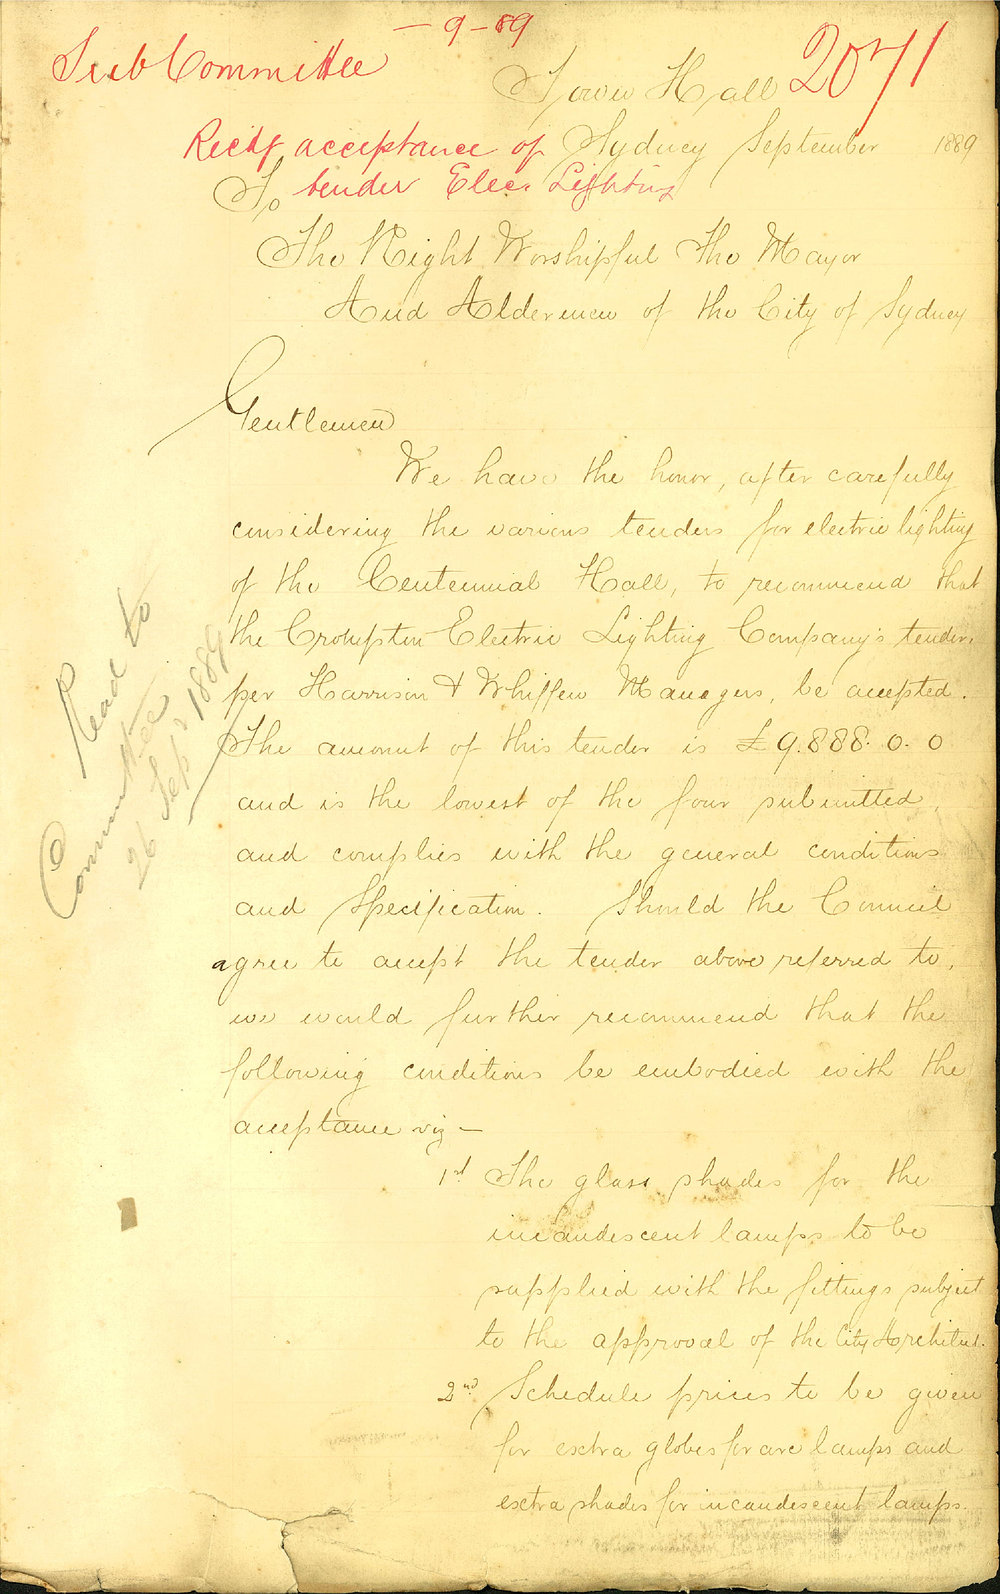 — 9 – 89
Sub Committee
2071
Town Hall
Sydney September 1889
Recdg acceptance of
tender Elec. Lighting
To
The Right Worshipful The Mayor
And Aldermen of the City of Sydney
Gentlemen
We have the honor, after carefully
considering the various tenders for electric lighting
of the Centennial Hall, to recommend that
the Crompton Electric Lighting Company's tender,
per Harrison & Whiffen Managers, be accepted.
The amount of this tender is £9.888. 0. 0
and is the lowest of the four submitted,
and complies with the general conditions
and Specification. Should the Council
agree to accept the tender above referred to,
we would further recommend that the
following conditions be embodied with the
acceptance viz —
1st The glass shades for the
incandescent lamps to be
supplied with the fittings subject
to the approval of the City Architect.
2nd Schedule prices to be given
for extra globes for arc lamps and
extra shades for incandescent lamps.
Read to
Committee
26 Sepr 1889